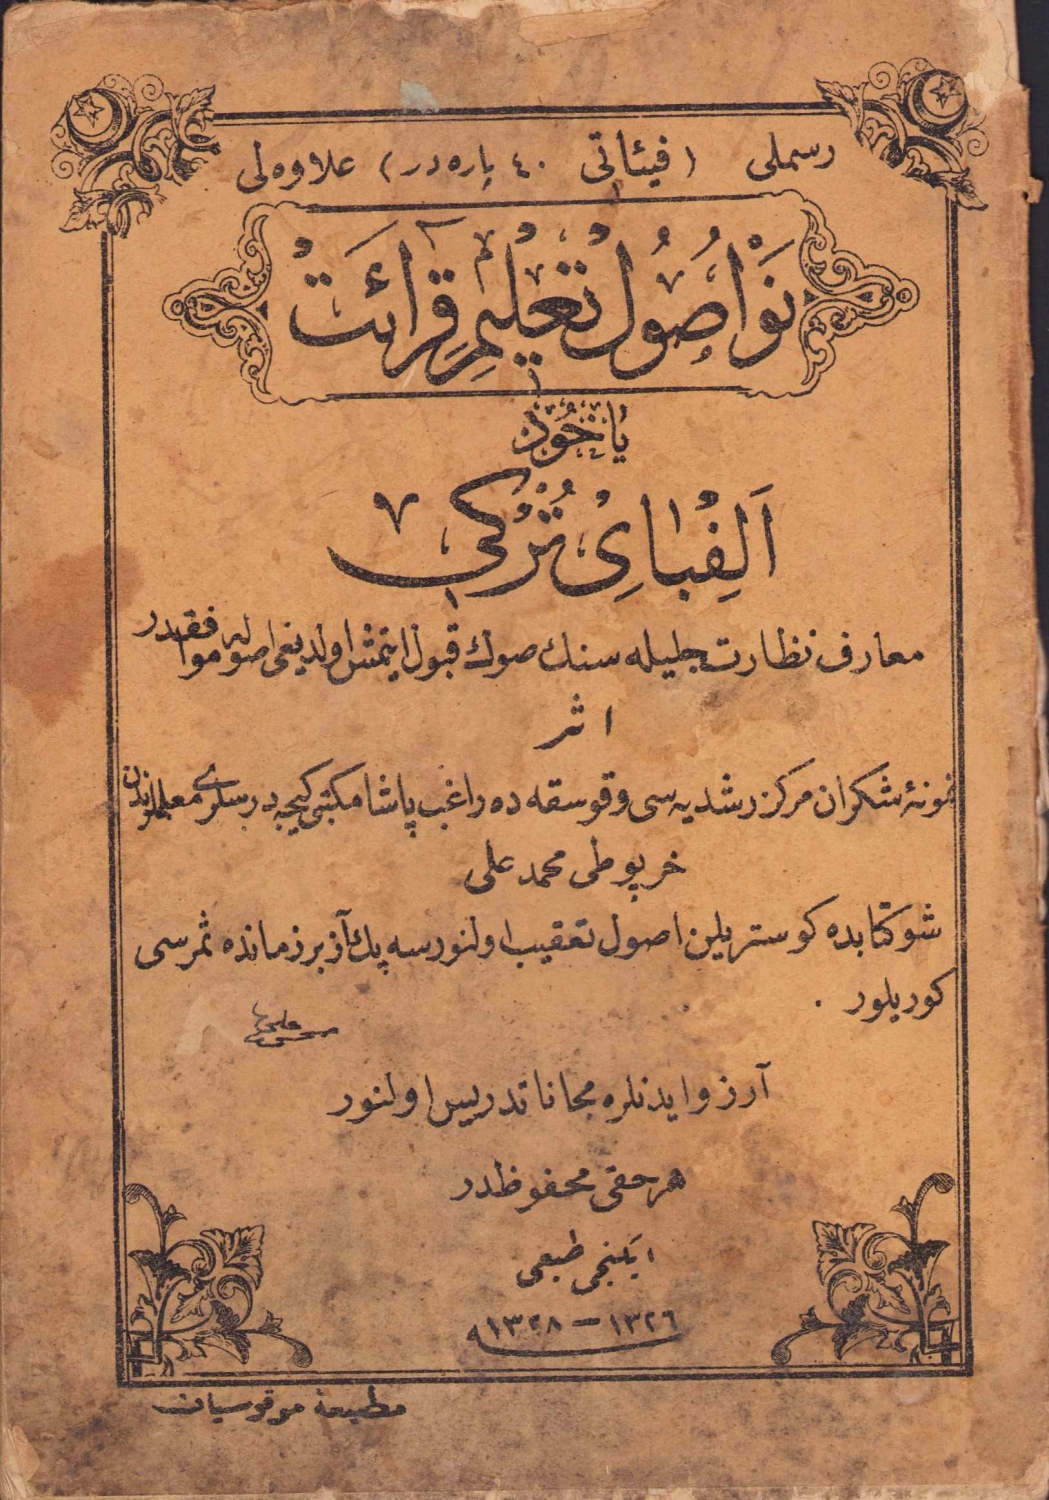 رسملی (فیئاتی ٤٠ پاره‌در) علاوه‌لی
نَوْاُصُولْ تَعْلیمِ قِرَائَتْ
یاخُوذْ
اَلِفْبایِ تُرْكی
معارف نظارت جلیله سنك صوك قبول ایتمش اولدیغی اصوله موافقدر
اثر
نمونهٔ شكران مركز رشدیه سی و قوسقه ده راغب پاشا مكتبی كیجه درسلری معلملرندن
خرپوطی محمد علی
شو كتابده كوستریلن اصول تعقیب اولنورسه پك آز بر زمانده ثمره‌سی
كوریلور .
آرزو ایدنلره مجانا تدریس اولنور
هر حقی محفوظدر
ایكنجی طبعی
١٣٢٦ — ١٣٢٨
مطبعهٔ موقوسیان